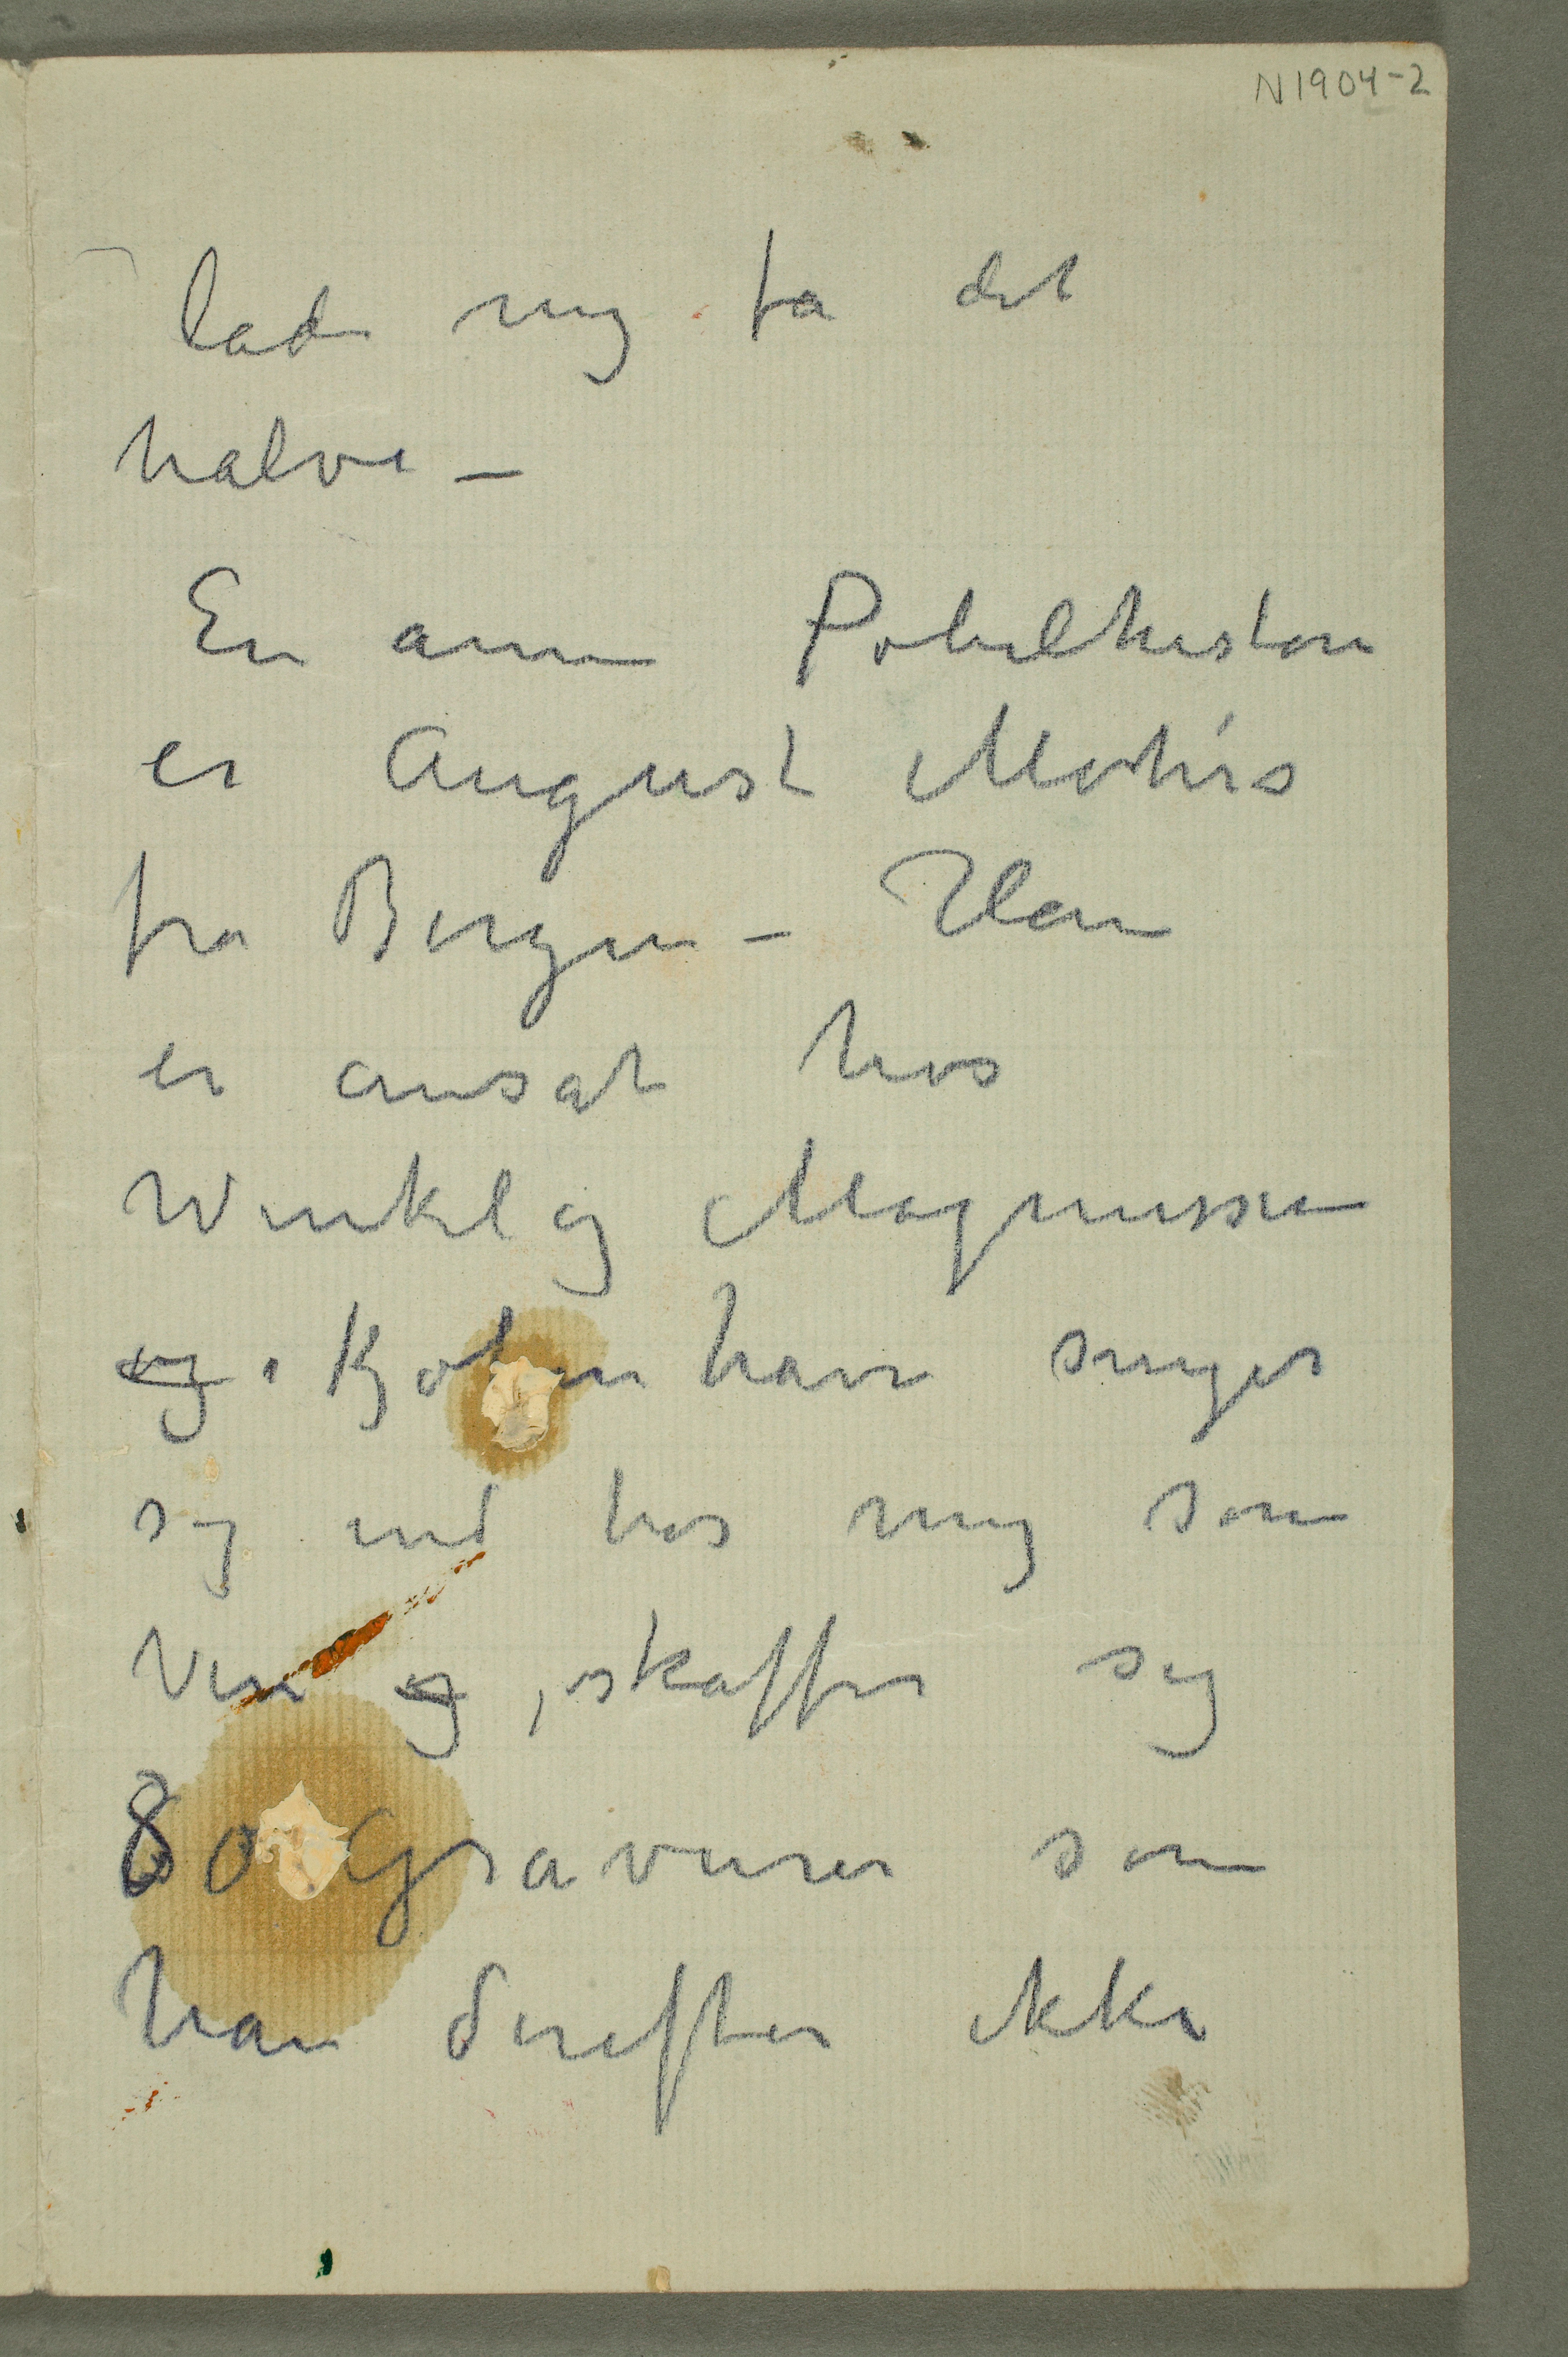 N1904-2
lade mig ta det
halve –
En annen Pobelhistorie
er August Mohrs
fra Bergen – Han
er ansat hos
Winkel og Magnussen
og i Kjøbenhavn sniger
sig ind hos mig som
Ven og , skaffer sig
80 Gravurer som
han derefter ikke